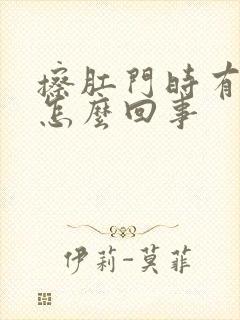 擦肛門時有
怎麼回事
伊莉-莫菲